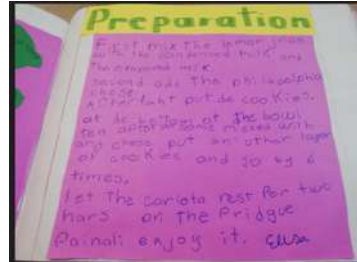 Preparation
First mix the lemon juice
with the condensed milk and
the evapored milk
second add the philadelphia
cheese
After taht put de cookies.
at de bottom of the bowl
ten add some mixed with
any chese put an other layer
of cookies and so by 6
times,
let the carlota rest for two
hars on the Pridgue
Painali enjoy it. Elisa